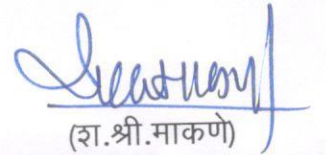 (श.श्री.माकणे)